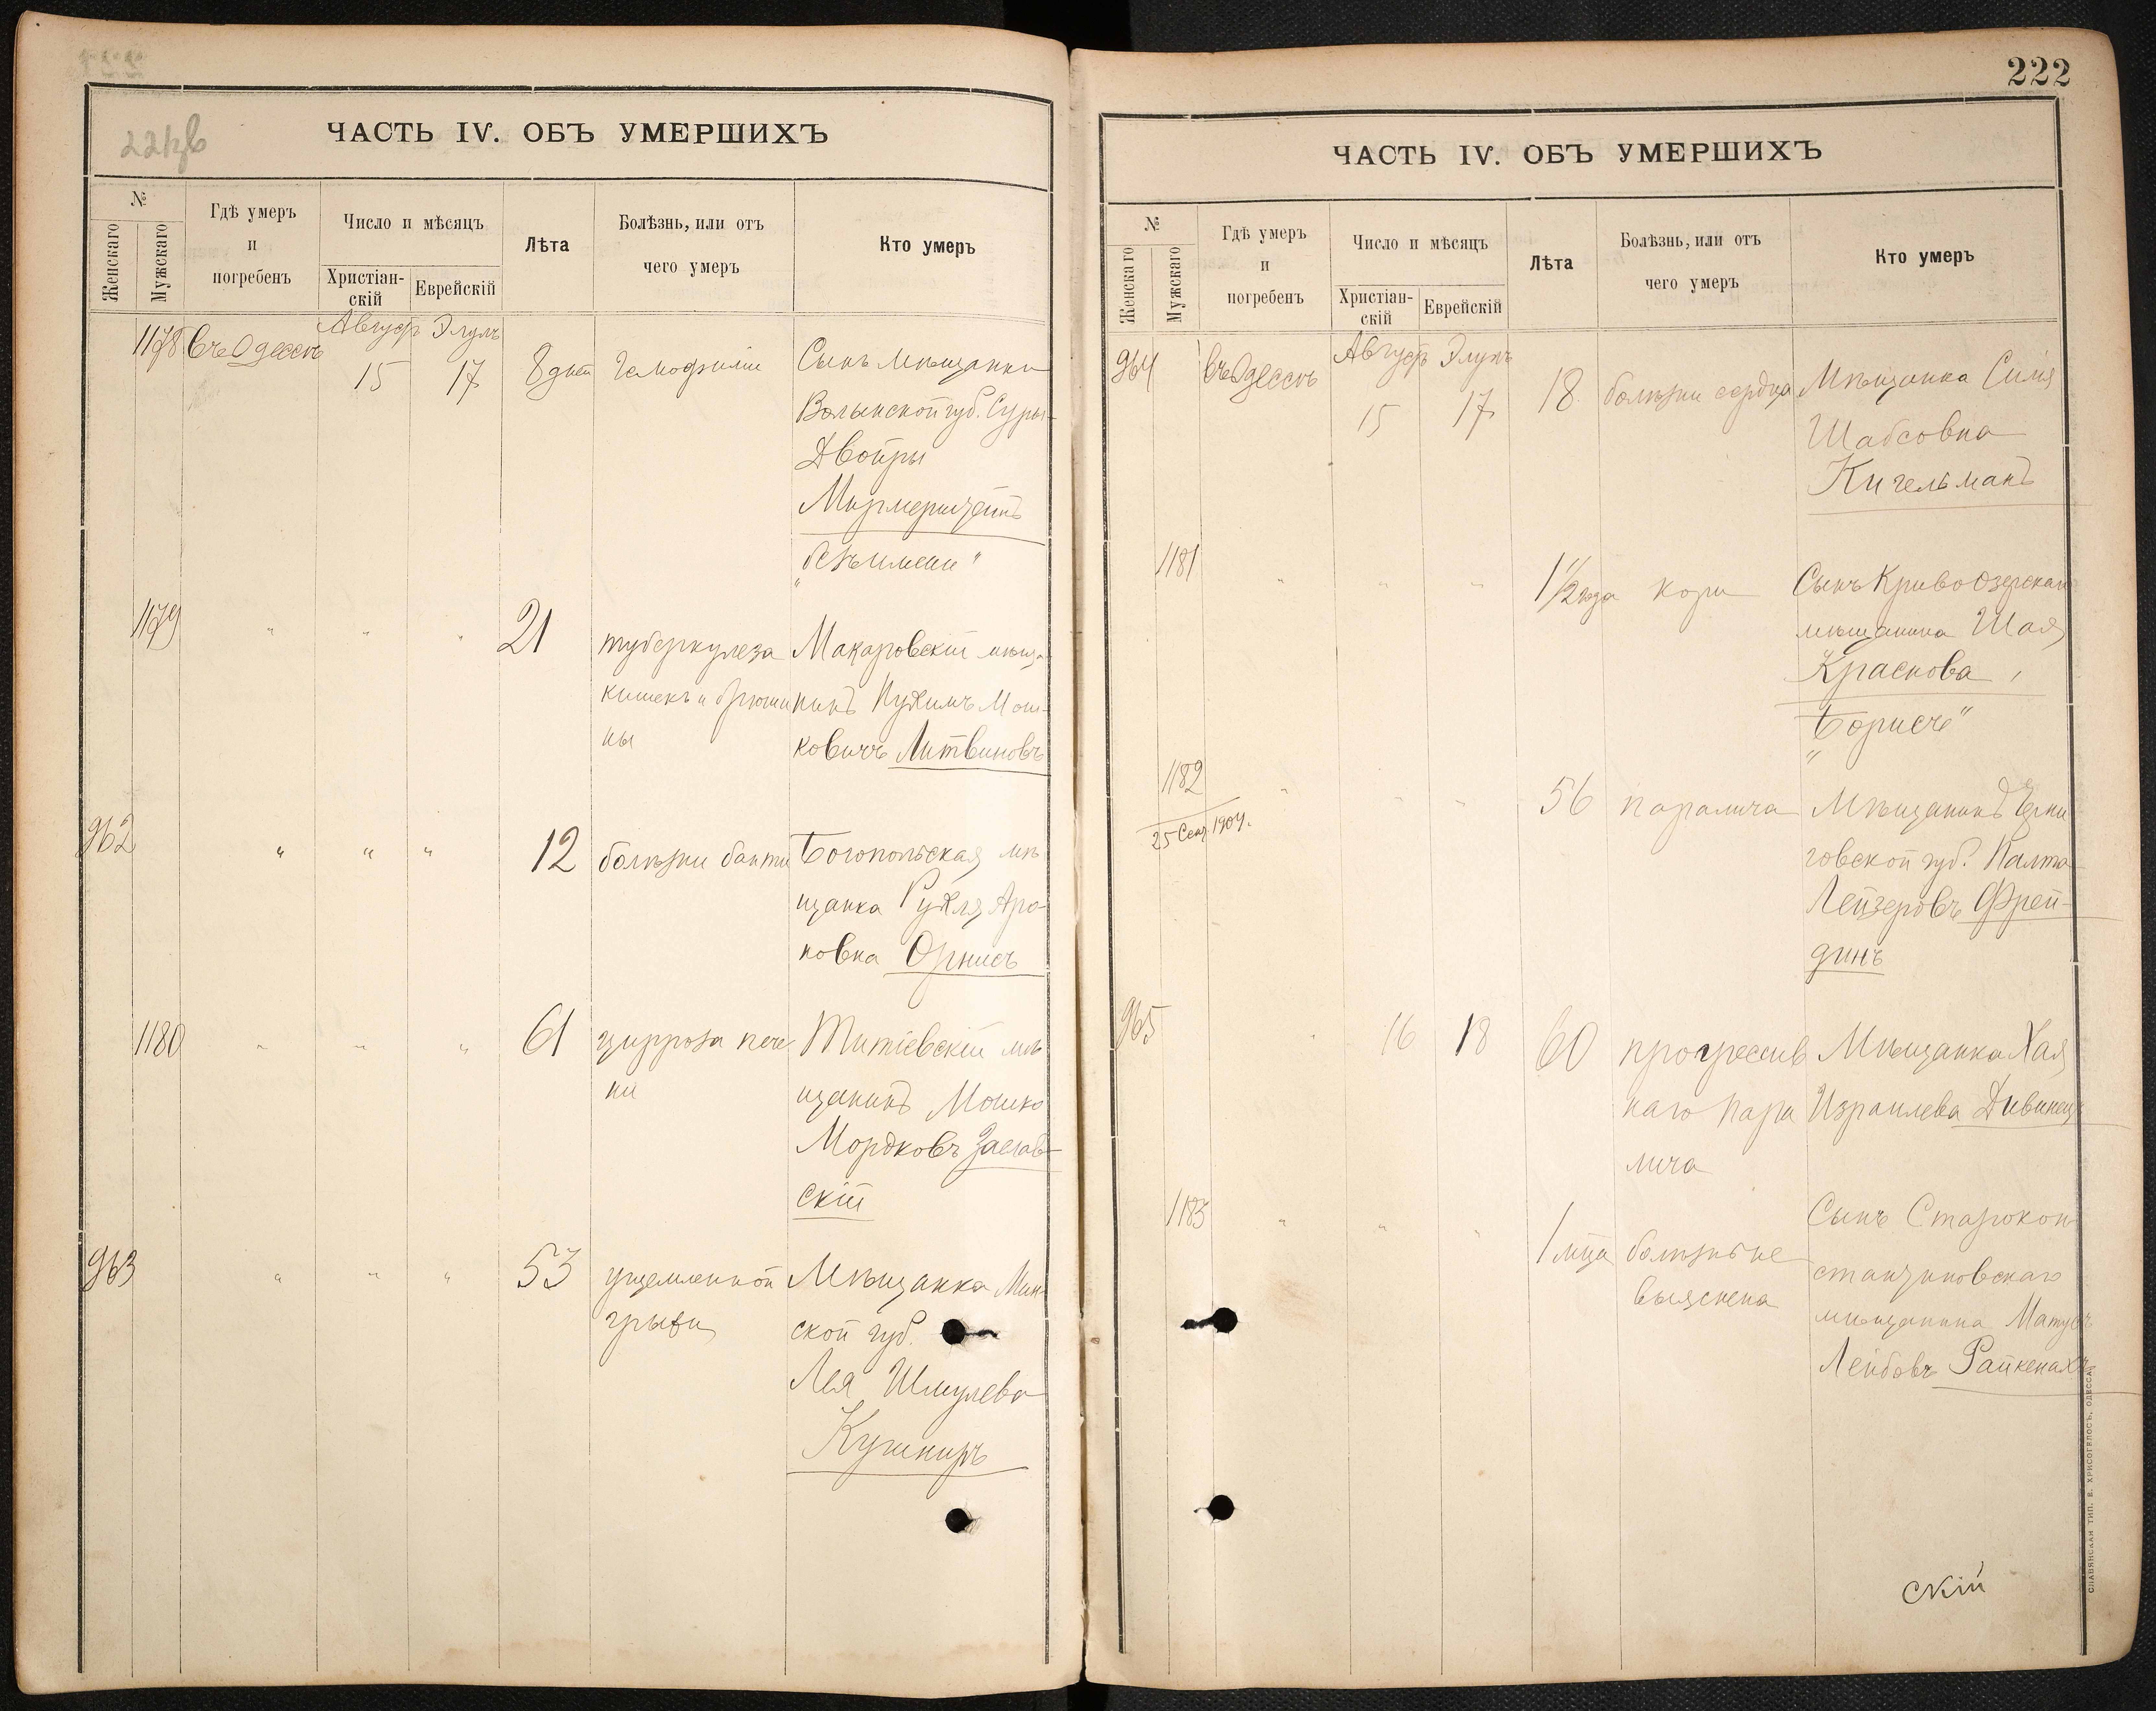 ЧАСТЬ IV. ОБЪ УМЕРШИХЪ
№
Женскаго
Мужскаго
Гдѣ умеръ
и
погребенъ
Число и мѣсяцъ
Христіан-
скій
Еврейскій
Лѣта
Болѣзнь, или отъ
чего умеръ
Кто умеръ
1178 въ Одессѣ
Август Элулъ
15 17
8 дней
Гемофиліи
Сынъ мѣщанки
Волынской губ. Суры-
Двойры
"безъ имени"
1179 " " " 21
туберкулеза
кишекъ и брюши
ны
Макаровскій мѣща-
нинъ Нухимъ Мош-
ковичъ Литвиновъ
962 " " " 12
болѣзни
Богопольская мѣ
щанка Рухля Аро-
новна
1180 " " " 61
цирроза пече
ни
Титіевскій мѣ
щанинъ Мошко
Мордковъ Заслав-
скій
963 " " " 53
ущемленной
грыжи
Мѣщанка Мин-
ской губ.
Лея Шмулева
Кушниръ
222
ЧАСТЬ IV. ОБЪ УМЕРШИХЪ
№
Женскаго
Мужскаго
Гдѣ умеръ
и
погребенъ
Число и мѣсяцъ
Христіан-
скій
Еврейскій
Лѣта
Болѣзнь, или отъ
чего умеръ
Кто умеръ
964 въ Одессѣ
Август Элулъ
15 17
18
болѣзни сердца
Мѣщанка
Шабсовна
Кигельманъ
1181 " " " 1 1/2 года
кори
Сынъ Кривоозерскаго
мѣщанина Шая
Краснова
"Борисъ"
1182
25 Сен. 1904.
" " " 56
паралича
Мѣщанинъ Черни
говской губ.
Лейзеровъ Фрей-
динъ
965 " 16 18 60
прогрессив
наго пара
лича
Мѣщанка Хая
Израилева
1183 " " " 1 мца
болѣзнь не
выяснена
Сынъ Старокон
стантиновскаго
мѣщанина
Лейбовъ
скій
СЛАВЯНСКАЯ ТИП. Е. ХРИСОГЕЛОСЪ, ОДЕССА